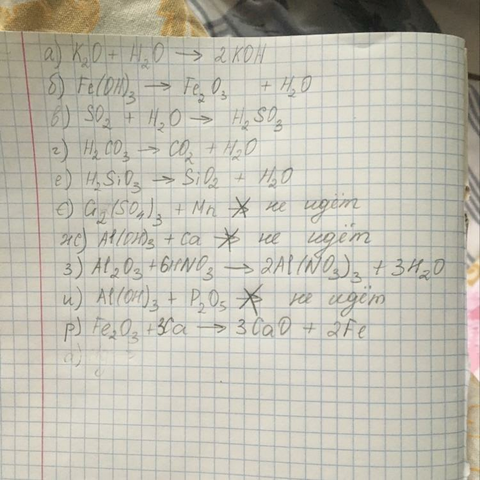 а) K₂O + H₂O → 2KOH
б) Fe(OH)₃ → Fe₂O₃ + H₂O
в) SO₂ + H₂O → H₂SO₃
г) H₂CO₃ → CO₂ + H₂O
е) H₂SiO₃ → SiO₂ + H₂O
є) Cr₂(SO₄)₃ + Mn ↛ не идёт
ж) Al(OH)₃ + Ca ↛ не идёт
з) Al₂O₃ + 6HNO₃ → 2Al(NO₃)₃ + 3H₂O
и) Al(OH)₃ + P₂O₅ ↛ не идёт
р) Fe₂O₃ + 3Ca → 3CaO + 2Fe
а)